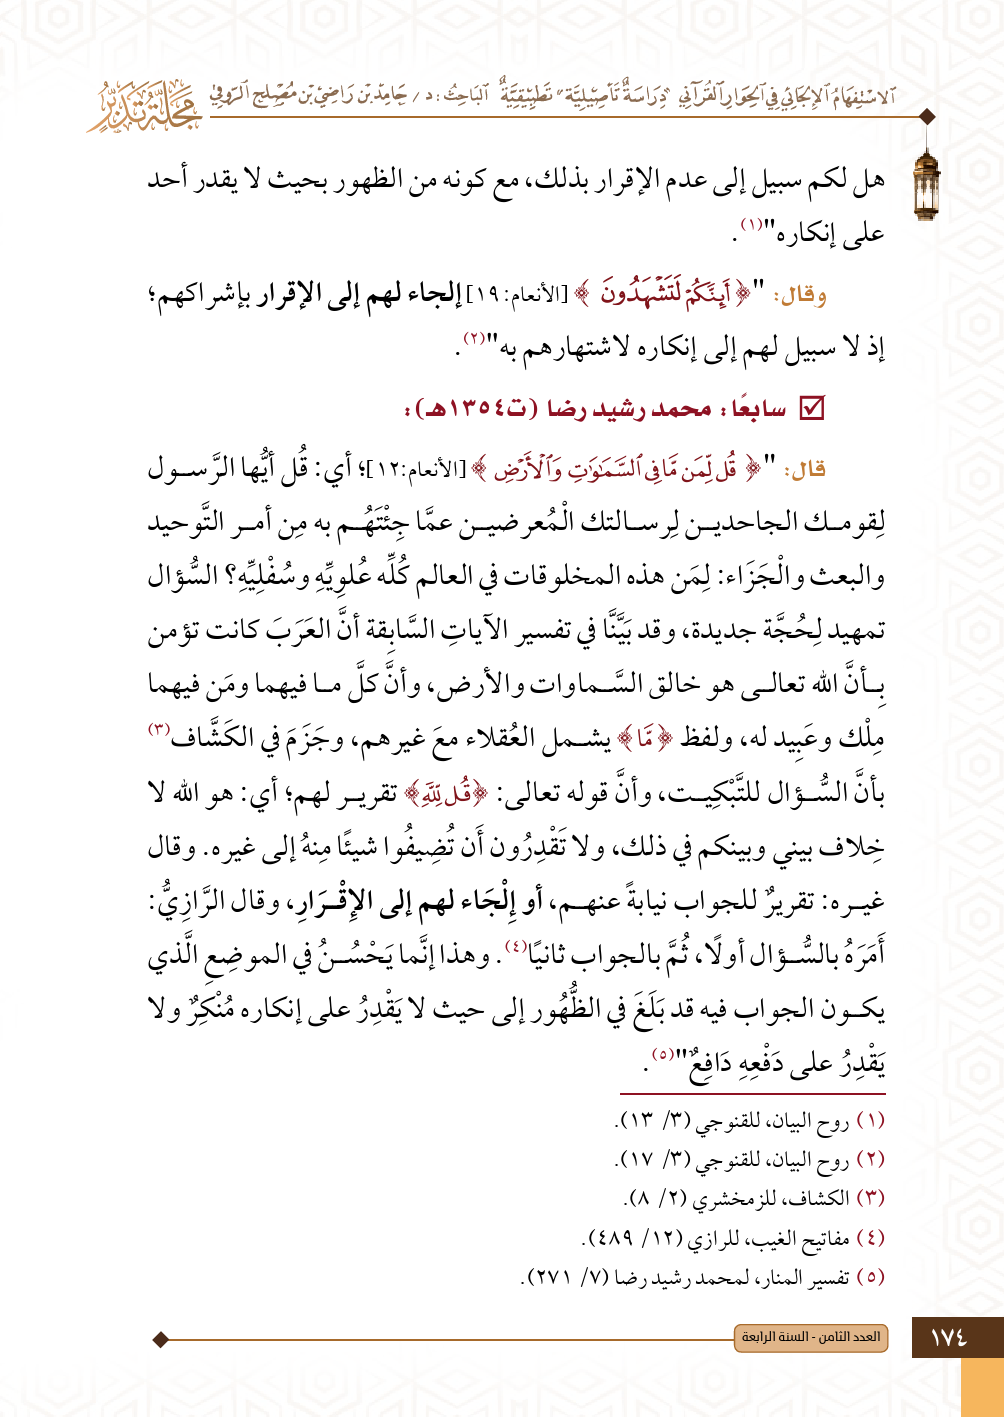 الاسْتِفْهَامُ الإِلْجَائِيُّ فِي الحِوَارِ القُرْآنِي "دِرَاسَةٌ تَأْصِيلِيَّة - تَطْبِيْقِيَّةٌ" البَاحِثُ: د / حَامِدُ بْن رَاضِيْ بْن مُصْلِح الرّوقِي
مجلة تدبر
هل لكم سبيل إلى عدم الإقرار بذلك، مع كونه من الظهور بحيث لا يقدر أحد
على إنكاره"(١).
وقال: "﴿ أَئِنَّكُمْ لَتَشْهَدُونَ ﴾ [الأنعام:١٩] إلجاء لهم إلى الإقرار بإشراكهم؛
إذ لا سبيل لهم إلى إنكاره لاشتهارهم به"(٢).
سابعًا: محمد رشيد رضا (ت١٣٥٤هـ):
قال: "﴿ قُل لِّمَن مَّا فِي ٱلسَّمَٰوَٰتِ وَٱلْأَرْضِ ﴾ [الأنعام:١٢]؛ أي: قُل أيُّها الرَّسول
لِقومك الجاحدين لِرسالتك الْمُعرضين عمَّا جِئْتَهُم به مِن أمر التَّوحيد
والبعث والْجَزَاء: لِمَن هذه المخلوقات في العالم كُلِّه عُلوِيِّهِ وسُفْلِيِّهِ؟ السُّؤال
تمهيد لِحُجَّة جديدة، وقد بَيَّنَّا في تفسير الآياتِ السَّابِقة أنَّ العَرَبَ كانت تؤمن
بِأنَّ الله تعالى هو خالق السَّماوات والأرض، وأنَّ كلَّ ما فيهما ومَن فيهما
مِلْك وعَبِيد له، ولفظ ﴿ مَّا ﴾ يشمل العُقلاء معَ غيرهم، وجَزَمَ في الكَشَّاف(٣)
بأنَّ السُّؤال للتَّبْكِيت، وأنَّ قوله تعالى: ﴿قُل لِّلَّهِ﴾ تقرير لهم؛ أي: هو الله لا
خِلاف بيني وبينكم في ذلك، ولا تَقْدِرُون أَن تُضِيفُوا شيئًا مِنهُ إلى غيره. وقال
غيره: تقريرٌ للجواب نيابةً عنهم، أو إِلْجَاء لهم إلى الإِقْرَارِ، وقال الرَّازِيُّ:
أَمَرَهُ بالسُّؤال أولًا، ثُمَّ بالجواب ثانيًا(٤). وهذا إنَّما يَحْسُنُ في الموضِعِ الَّذي
يكون الجواب فيه قد بَلَغَ في الظُّهُور إلى حيث لا يَقْدِرُ على إنكاره مُنْكِرٌ ولا
يَقْدِرُ على دَفْعِهِ دَافِعٌ"(٥).
(١) روح البيان، للقنوجي (٣/ ١٣).
(٢) روح البيان، للقنوجي (٣/ ١٧).
(٣) الكشاف، للزمخشري (٢/ ٨).
(٤) مفاتيح الغيب، للرازي (١٢/ ٤٨٩).
(٥) تفسير المنار، لمحمد رشيد رضا (٧/ ٢٧١).
العدد الثامن - السنة الرابعة
١٧٤